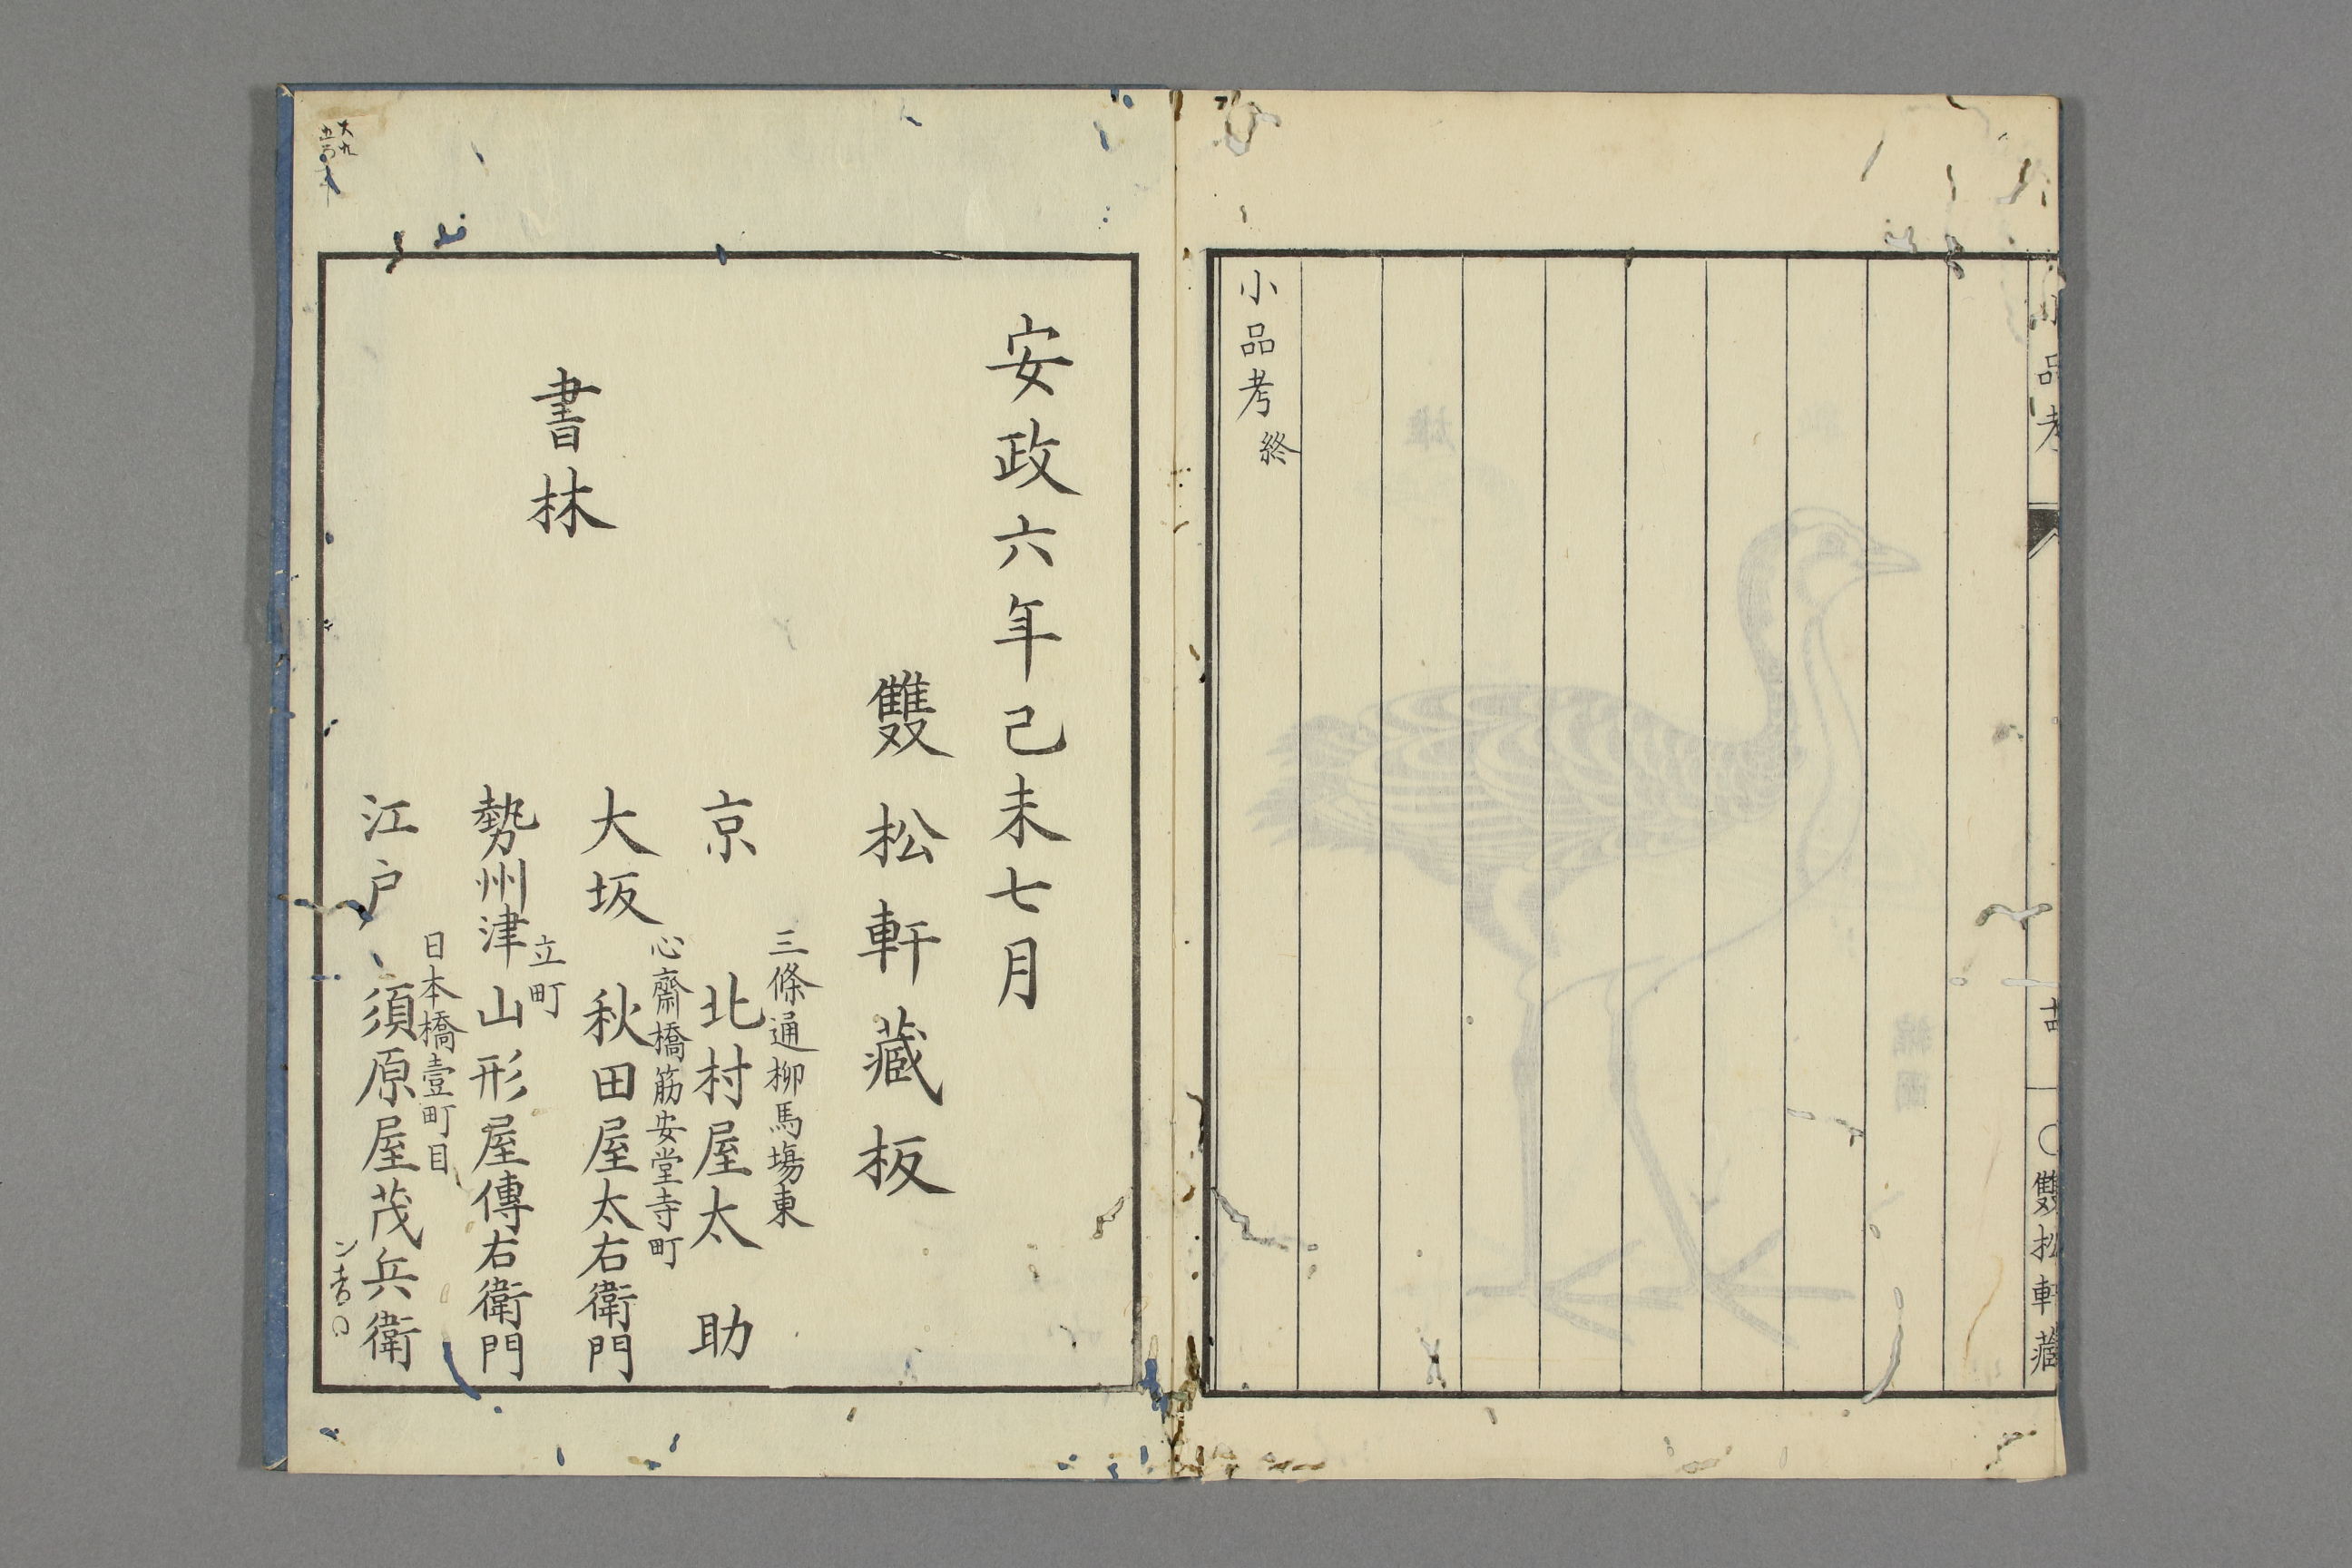 小品考
雙松軒藏
小品考終
安政六年己未七月
雙松軒藏板
書林
三條通柳馬塲東
京 北村屋太助
心齋橋筋安堂寺町
大坂 秋田屋太右衛門
立町
勢州津 山形屋傳右衛門
日本橋壹町目
江戸 須原屋茂兵衛